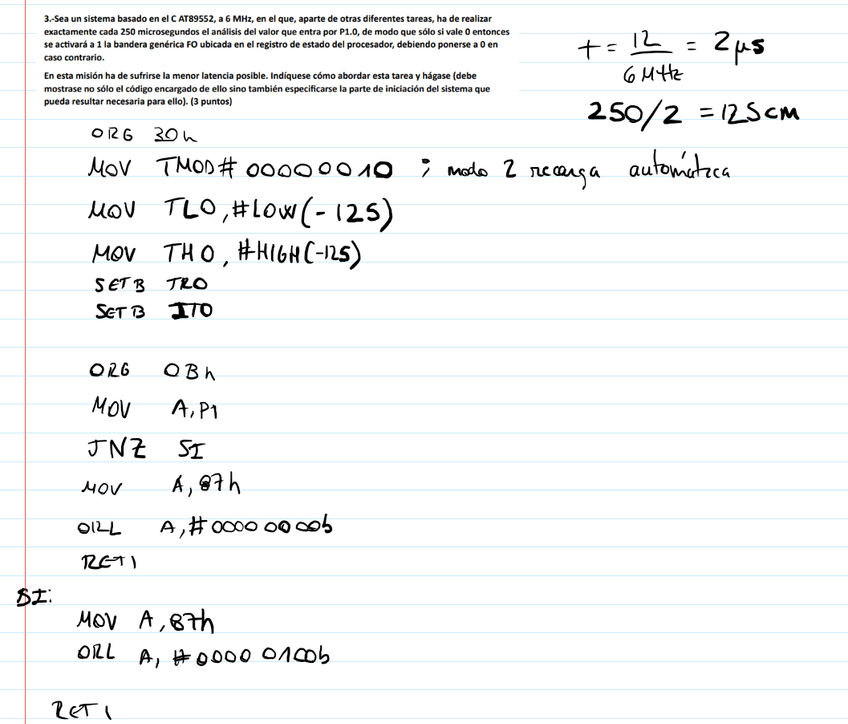 3.-Sea un sistema basado en el C AT89552, a 6 MHz, en el que, aparte de otras diferentes tareas, ha de realizar
exactamente cada 250 microsegundos el análisis del valor que entra por P1.0, de modo que sólo si vale 0 entonces
se activará a 1 la bandera genérica FO ubicada en el registro de estado del procesador, debiendo ponerse a 0 en
caso contrario.
En esta misión ha de sufrirse la menor latencia posible. Indíquese cómo abordar esta tarea y hágase (debe
mostrase no sólo el código encargado de ello sino también especificarse la parte de iniciación del sistema que
pueda resultar necesaria para ello). (3 puntos)
t = 12 / 6 MHz = 2 μs
250/2 = 125 CM
ORG 30h
MOV TMOD # 00000010 ; modo 2 recarga automática
MOV TL0, #LOW(-125)
MOV TH0, #HIGH(-125)
SETB TR0
SETB IT0
ORG 0Bh
MOV A, P1
JNZ SI
MOV A, 87h
ORL A, # 00000000b
RETI
SI:
MOV A, 87h
ORL A, # 00000100b
RETI